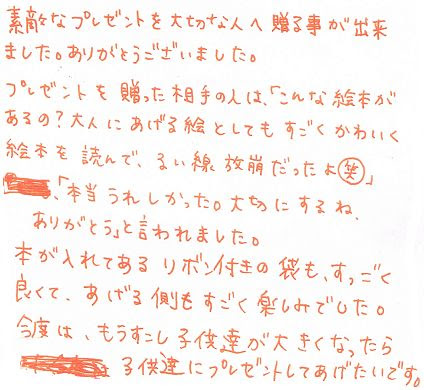 素敵なプレゼントを大切な人へ贈る事が出来
ました。ありがとうございました。
プレゼントを贈った相手の人は、「こんな絵本が
あるの?大人にあげる絵としてもすごくかわいく
絵本を読んで、るい線放崩だったよ(笑)」
、「本当うれしかった。大切にするね、
ありがとう」と言われました。
本が入れてあるリボン付きの袋も、すっごく
良くて、あげる側もすごく楽しみでした。
今度は、もうすこし子供達が大きくなったら
子供達にプレゼントしてあげたいです。